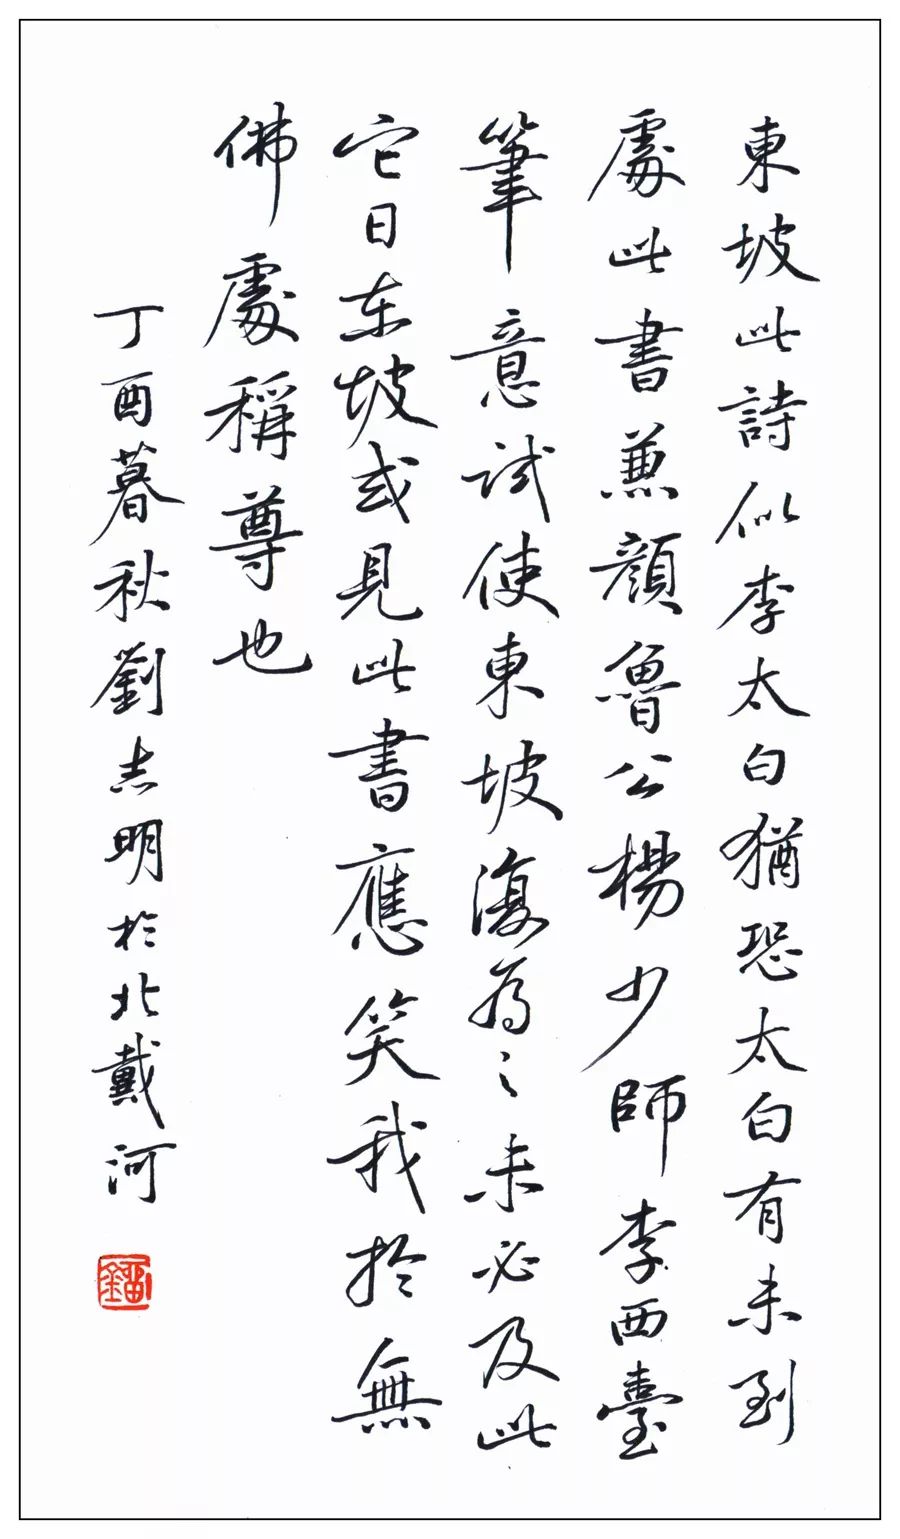 東坡此詩似李太白猶恐太白有未到
處此書兼顏魯公楊少師李西臺
筆意試使東坡復為之未必及此
它日东坡或見此書應笑我於無
佛處稱尊也
丁酉暮秋劉志明於北戴河
劉